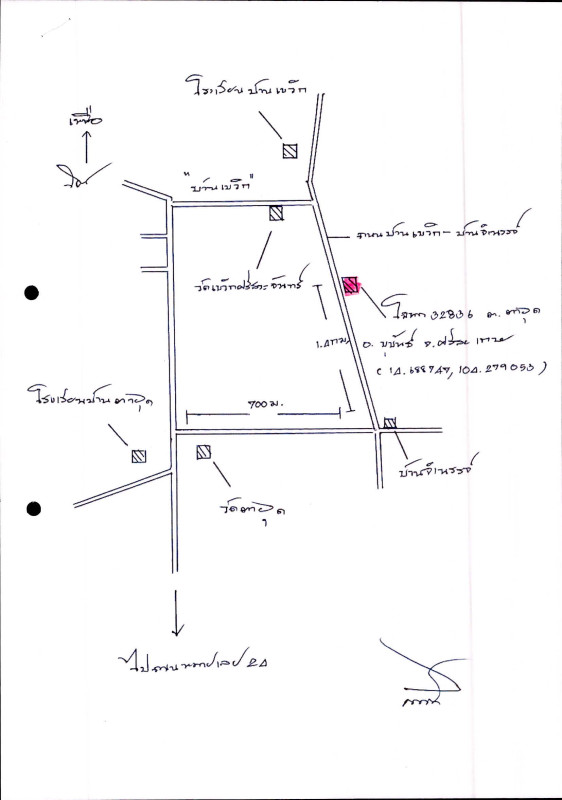 โรงเรียนบ้านเขวิก
เหนือ
"บ้านเขวิก"
ถนนบ้านเขวิก - บ้านจิเนรจ์
วัดเขวิกศรีสะจันทร์
โฉนด 32836 ต.ตาอุด
อ. ขุขันธ์ จ.ศรีสะเกษ
(14.688747, 104.279053)
1.4กม.
700 ม.
โรงเรียนบ้านตาอุด
วัดตาอุด
ไปถนนหมายเลข 24